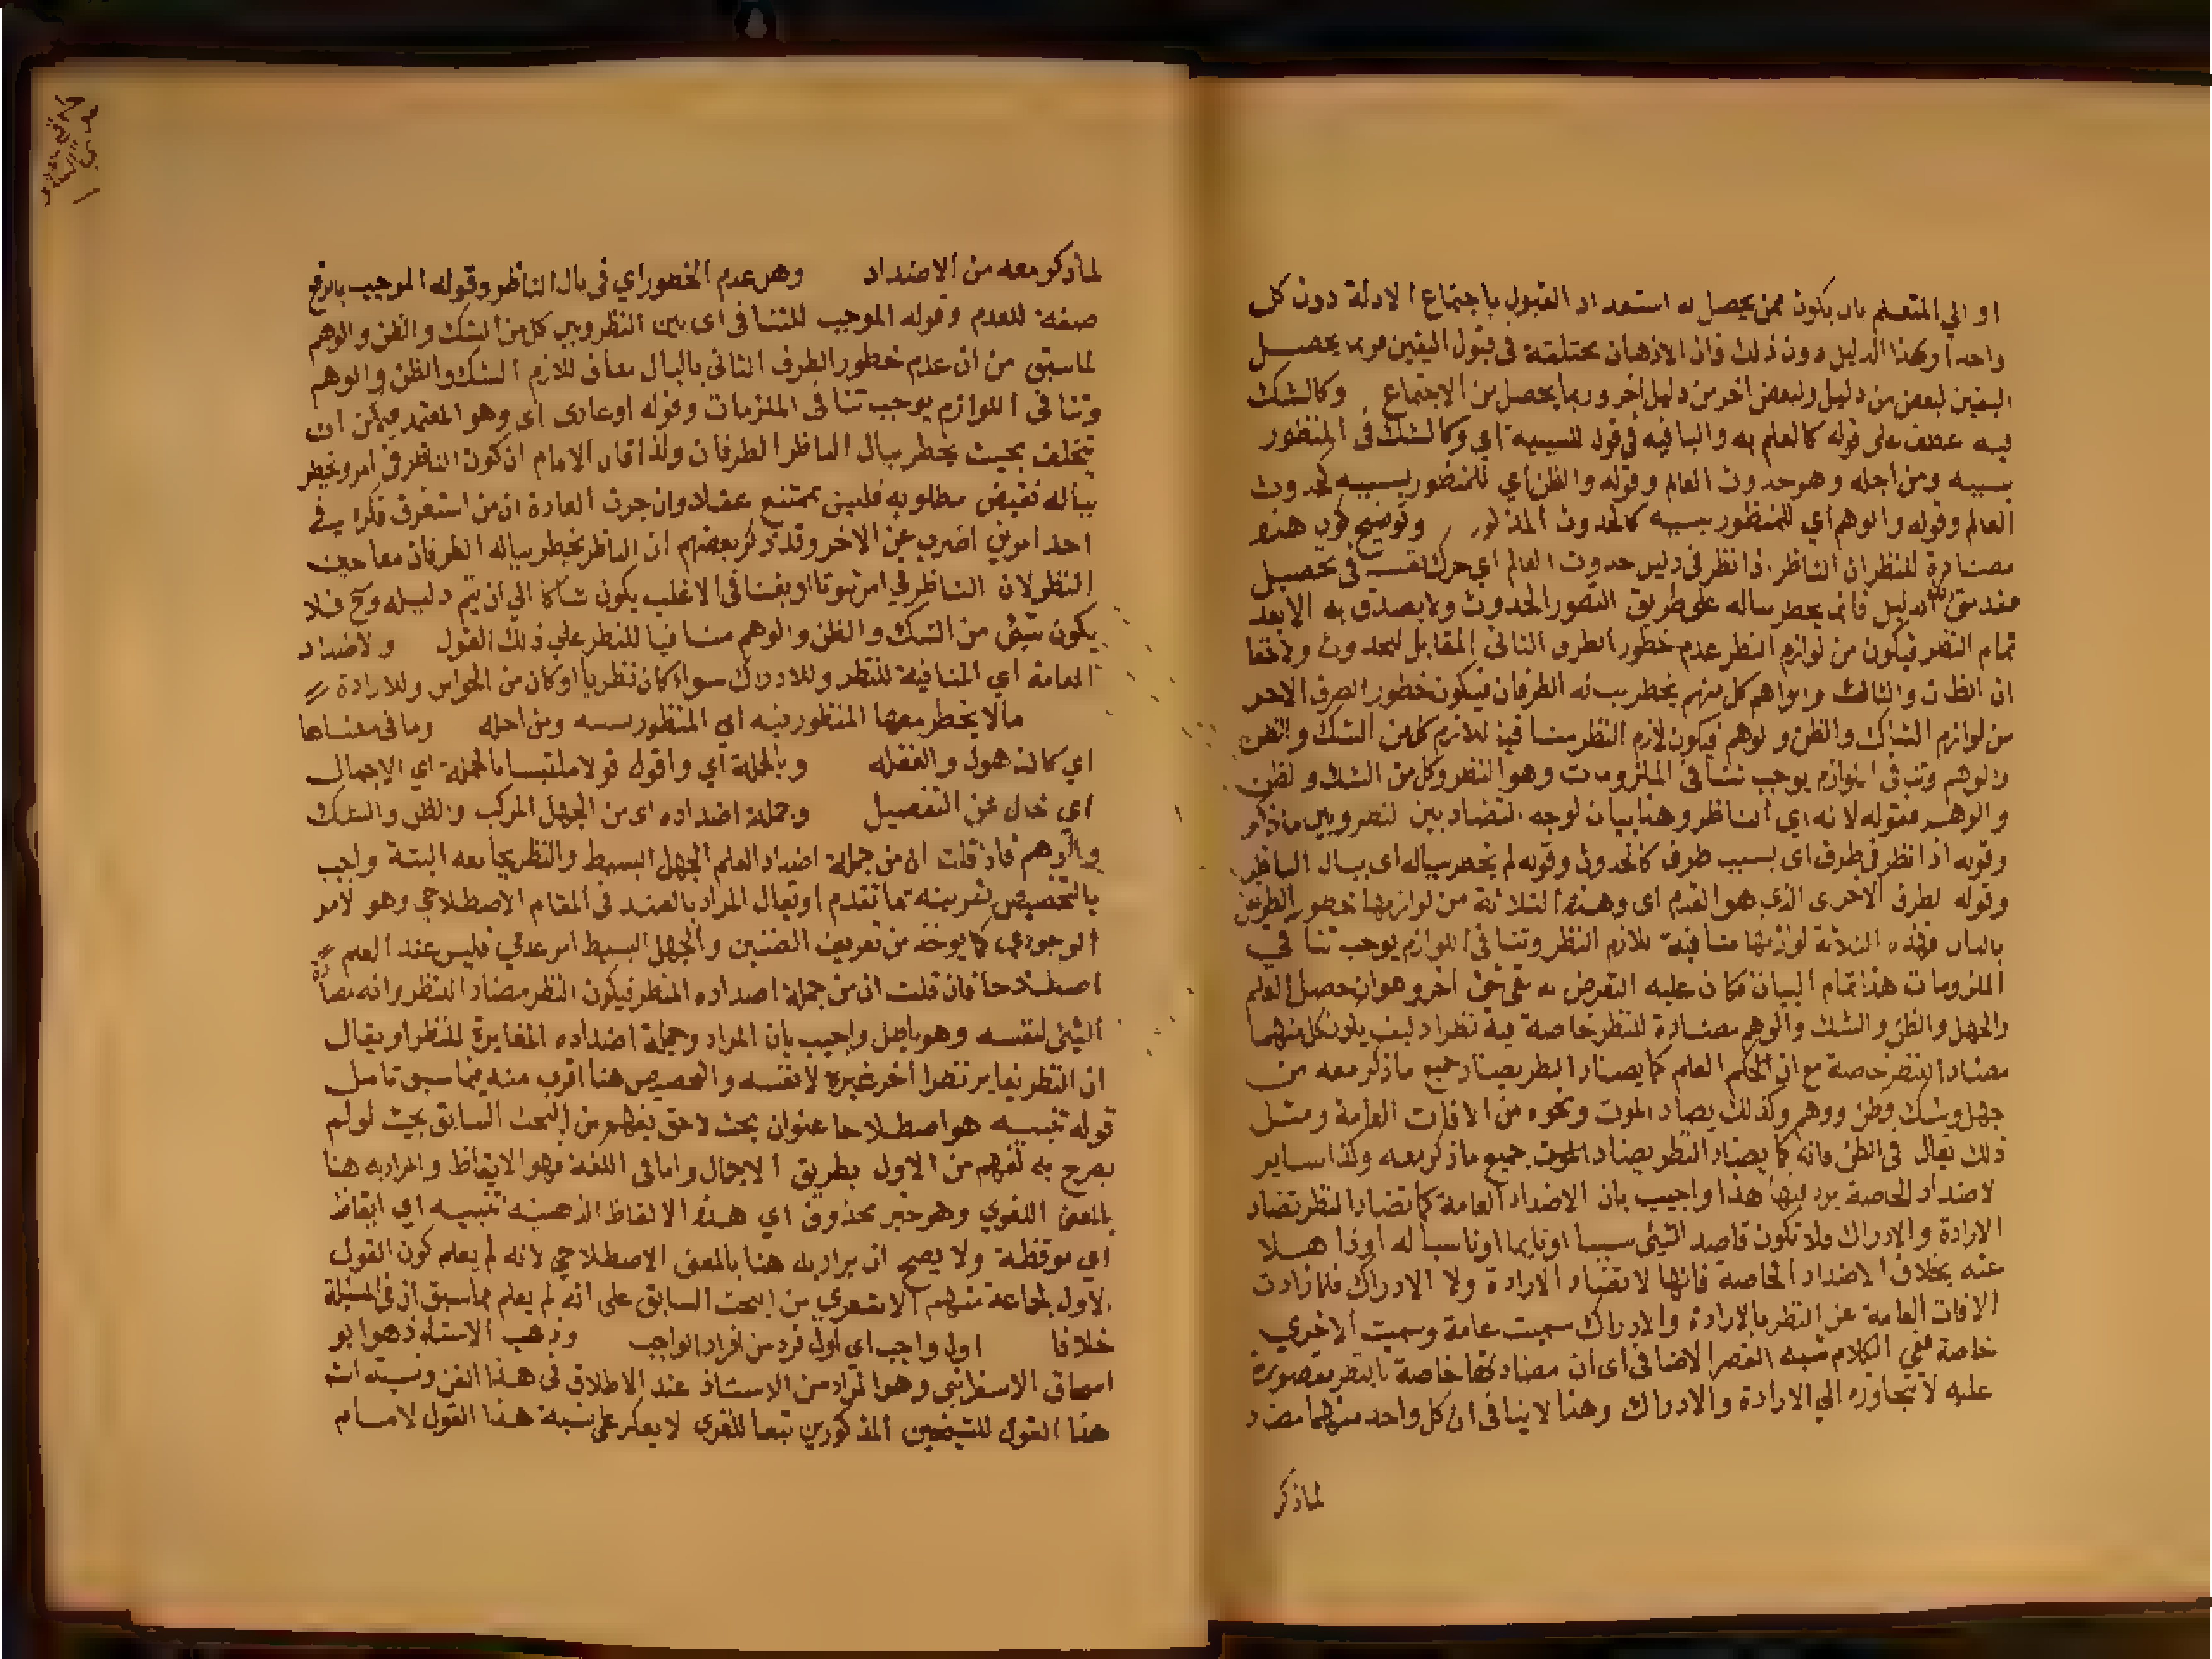 او الي المتعلم بان يكون ممن يحصل له استعداد القبول باجتماع الادلة دون كل
واحد او بهذا الدليل دون ذلك فان الاذهان مختلفة في قبول اليقين فربما يحصل
اليقين لبعض من دليل ولبعض اخر من دليل اخر وربما يحصل من الاجتماع وكالشك
فيه عطف على قوله كالعلم به والباء فيه في قوله للسببية اي وكالشك في المنظور
بسببه ومن اجله وهو حدوث العالم وقوله والظن اي للمنظور بسببه كحدوث
العالم وقوله والوهم اي للمنظور بسببه كالحدوث المذكور وتوضيح كون هذه
مضادة للنظر ان الناظر اذا نظر في دليل حدوث العالم اي حرك نفسه في تحصيل
الدليل فانه يخطر بباله على طريق التصور الحدوث ولا يصدق به الا بعد
تمام النظر فيكون من لوازم النظر عدم خطور الطرف الثاني المقابل للحدوث ولا خفا
ان الظان والشاك والواهم كل منهم يخطر بباله الطرفان فيكون خطور الطرف الاخر
من لوازم الشك والظن والوهم فيكون لازم النظر منافيا للازم كل من الشك والظن
والوهم وتنافي اللوازم يوجب تنافي الملزومات وهو النظر وكل من الشك والظن
والوهم فقوله لانه اي الناظر وهنا بيان لوجه التضاد بين النظر وبين ما ذكر
وقوله اذا نظر في طرف اي بسبب طرف كالحدوث وقوله لم يخطر بباله اي ببال الناظر
وقوله الطرف الاخر اي الذي هو القدم اي وهذه الثلاثة من لوازمها خطور الطرفين
بالبال فهذه الثلاثة لوازمها منافية للازم النظر وتنافي اللوازم يوجب تنافي
الملزومات هذا تمام البيان فكان عليه التعرض له بقي شئ اخر وهو ان حصل العلم
والجهل والظن والشك والوهم مضادة للنظر خاصة فيه نظر اذ كيف يكون كل منهما
مضادا للنظر خاصة مع ان العلم كما يضاد النظر يضاد جميع ما ذكر معه من
جهل وشك وظن ووهم وكذلك يضاد الموت ونحوه من الافات العامة ومثل
ذلك يقال في الظن فانه كما يضاد النظر يضاد الموت جميع ما ذكر معه وكذا ساير
الاضداد الخاصة يرد فيها هذا واجيب بان الاضداد العامة كما تضاد النظر تضاد
الارادة والادراك فلا تكون قاصد الشئ سببا او نايما او ناسيا له او ذاهلا
عنه بخلاف الاضداد الخاصة فانها لا تضاد الارادة ولا الادراك فلما زادت
الافات العامة عن النظر بالارادة والادراك سميت عامة وسميت الاخرى
خاصة ففي الكلام شبه القصر الاضافي اي ان مضادتها خاصة بالنظر مقصورة
عليه لا تتجاوزه الي الارادة والادراك وهنا لا ينافي ان كل واحد منهما مضاد
لما ذكر
لما ذكر معه من الاضداد وهو عدم الخطور اي في بال الناظر وقوله الموجب بالرفع
صفة للعدم وقوله الموجب للتنافي اي بين النظر وبين كل من الشك والظن والوهم
لما سبق من ان عدم خطور الطرف الثاني بالبال مناف للازم الشك والظن والوهم
وتنافي اللوازم يوجب تنافي الملزومات وقوله او عادي اي وهو المعتمد فيمكن ان
يتخلف بحيث يخطر ببال الناظر الطرفان ولذا قال الامام ان كون الناظر في امر ويخطر
بباله نقيض مطلوبه فليس بممتنع عقلا وان جرت العادة ان من استغرق فكرا في
احد امرين اضرب عن الاخر وقد ذكر بعضهم ان الناظر يخطر بباله الطرفان معا حين
النظر لان الناظر في امر ثبوتا او نفيا في الاغلب يكون شاكا الي ان يتم دليله وح فلا
يكون شئ من الشك والظن والوهم منافيا للنظر علي ذلك القول والاضداد
العامة اي المنافية للنظر وللادراك سواء كان نظريا او كان من الحواس وللارادة
ما لا يخطر معها المنظور فيه اي المنظور بسببه ومن اجله وما في معناها
اي كالذهول والغفلة وبالجملة اي واقول قولا ملتبسا بالجملة اي الاجمال
اي خال عن التفصيل وجملة اضداده اي من الجهل المركب والظن والشك
والوهم فاذا قلت ان من جملة اضداد العلم الجهل البسيط والنظر يجامعه البتة واجيب
بالتخصيص بقرينة ما تقدم او يقال المراد بالضد في المقام الاصطلاحي وهو الامر
الوجودي كما يوخذ من تعريف الضدين والجهل البسيط امر عدمي فليس ضد العلم
اصطلاحا فان قلت ان من جملة اضداده النظر فيكون النظر مضاد للنظر وانه مضاد
الشئ لنفسه وهو باطل واجيب بان المراد وجملة اضداده المغايرة للنظر او يقال
ان النظر يغاير نظرا اخر غيره لا نفسه والتخصيص هنا اقرب منه فيما سبق تامل
قوله تنبيه هو اصطلاحا عنوان بحث لاحق يفهم من البحث السابق بحيث لو لم
يصرح به لفهم من الاول بطريق الاجمال واما في اللغة فهو الايقاظ والمراد به هنا
المعنى اللغوي وهو خبر محذوف اي هذه الالفاظ الذهنية تنبيه اي ايقاظ
اي موقظة ولا يصح ان يراد به هنا بالمعنى الاصطلاحي لانه لم يعلم كون القول
الاول لجماعة منهم الاشعري من البحث السابق على انه لم يعلم مما سبق ان في المسئلة
خلافا اول واجب اي اول فرد من افراد الواجب وذهب الاستاذ هو ابو
اسحاق الاسفراني وهو المراد من الاستاذ عند الاطلاق في هذا الفن ونسبة الشم
هنا القول للشيخين المذكورين تبعا للغري لا يعكر على نسبة هذا القول لامام